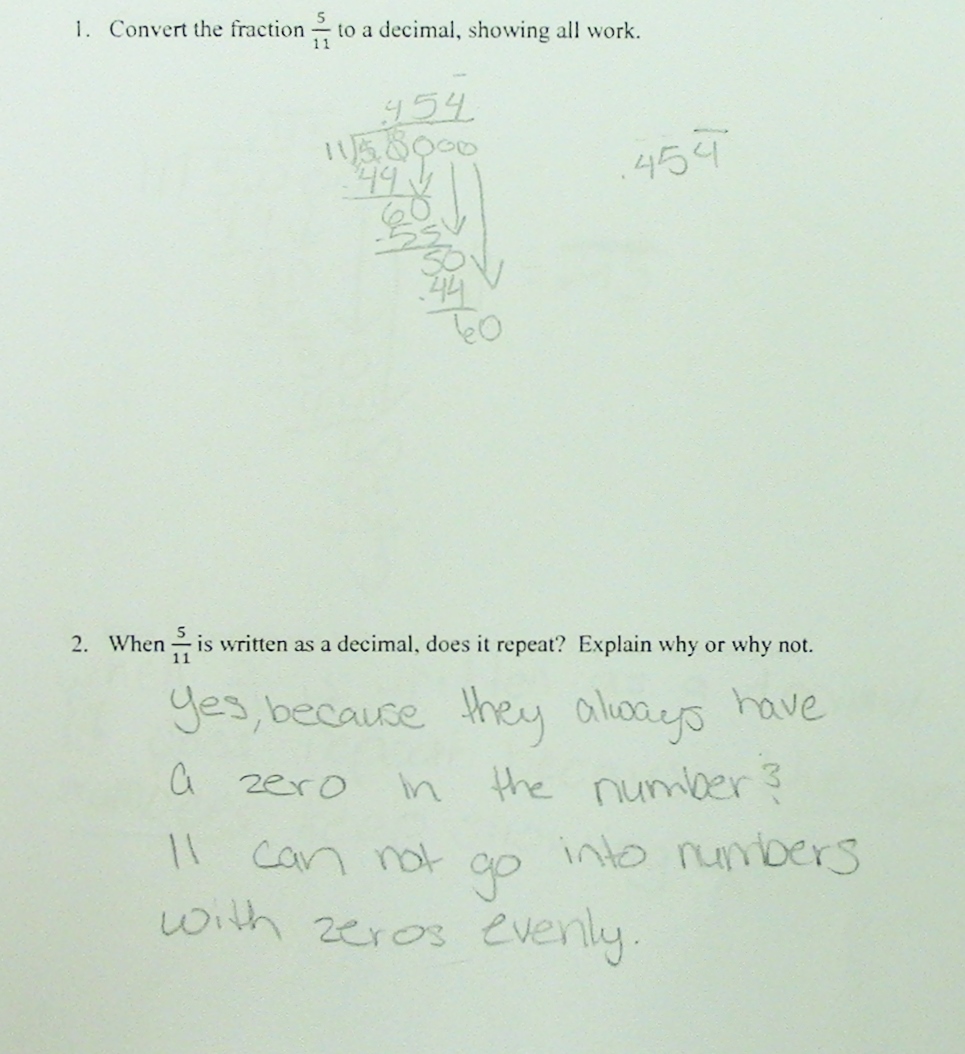 1. Convert the fraction 5/11 to a decimal, showing all work.
.454̅
11)5.0000
.454̅
-44
60
-55
50
-44
60
2. When 5/11 is written as a decimal, does it repeat? Explain why or why not.
Yes, because they always have
a zero in the number?
11 can not go into numbers
with zeros evenly.